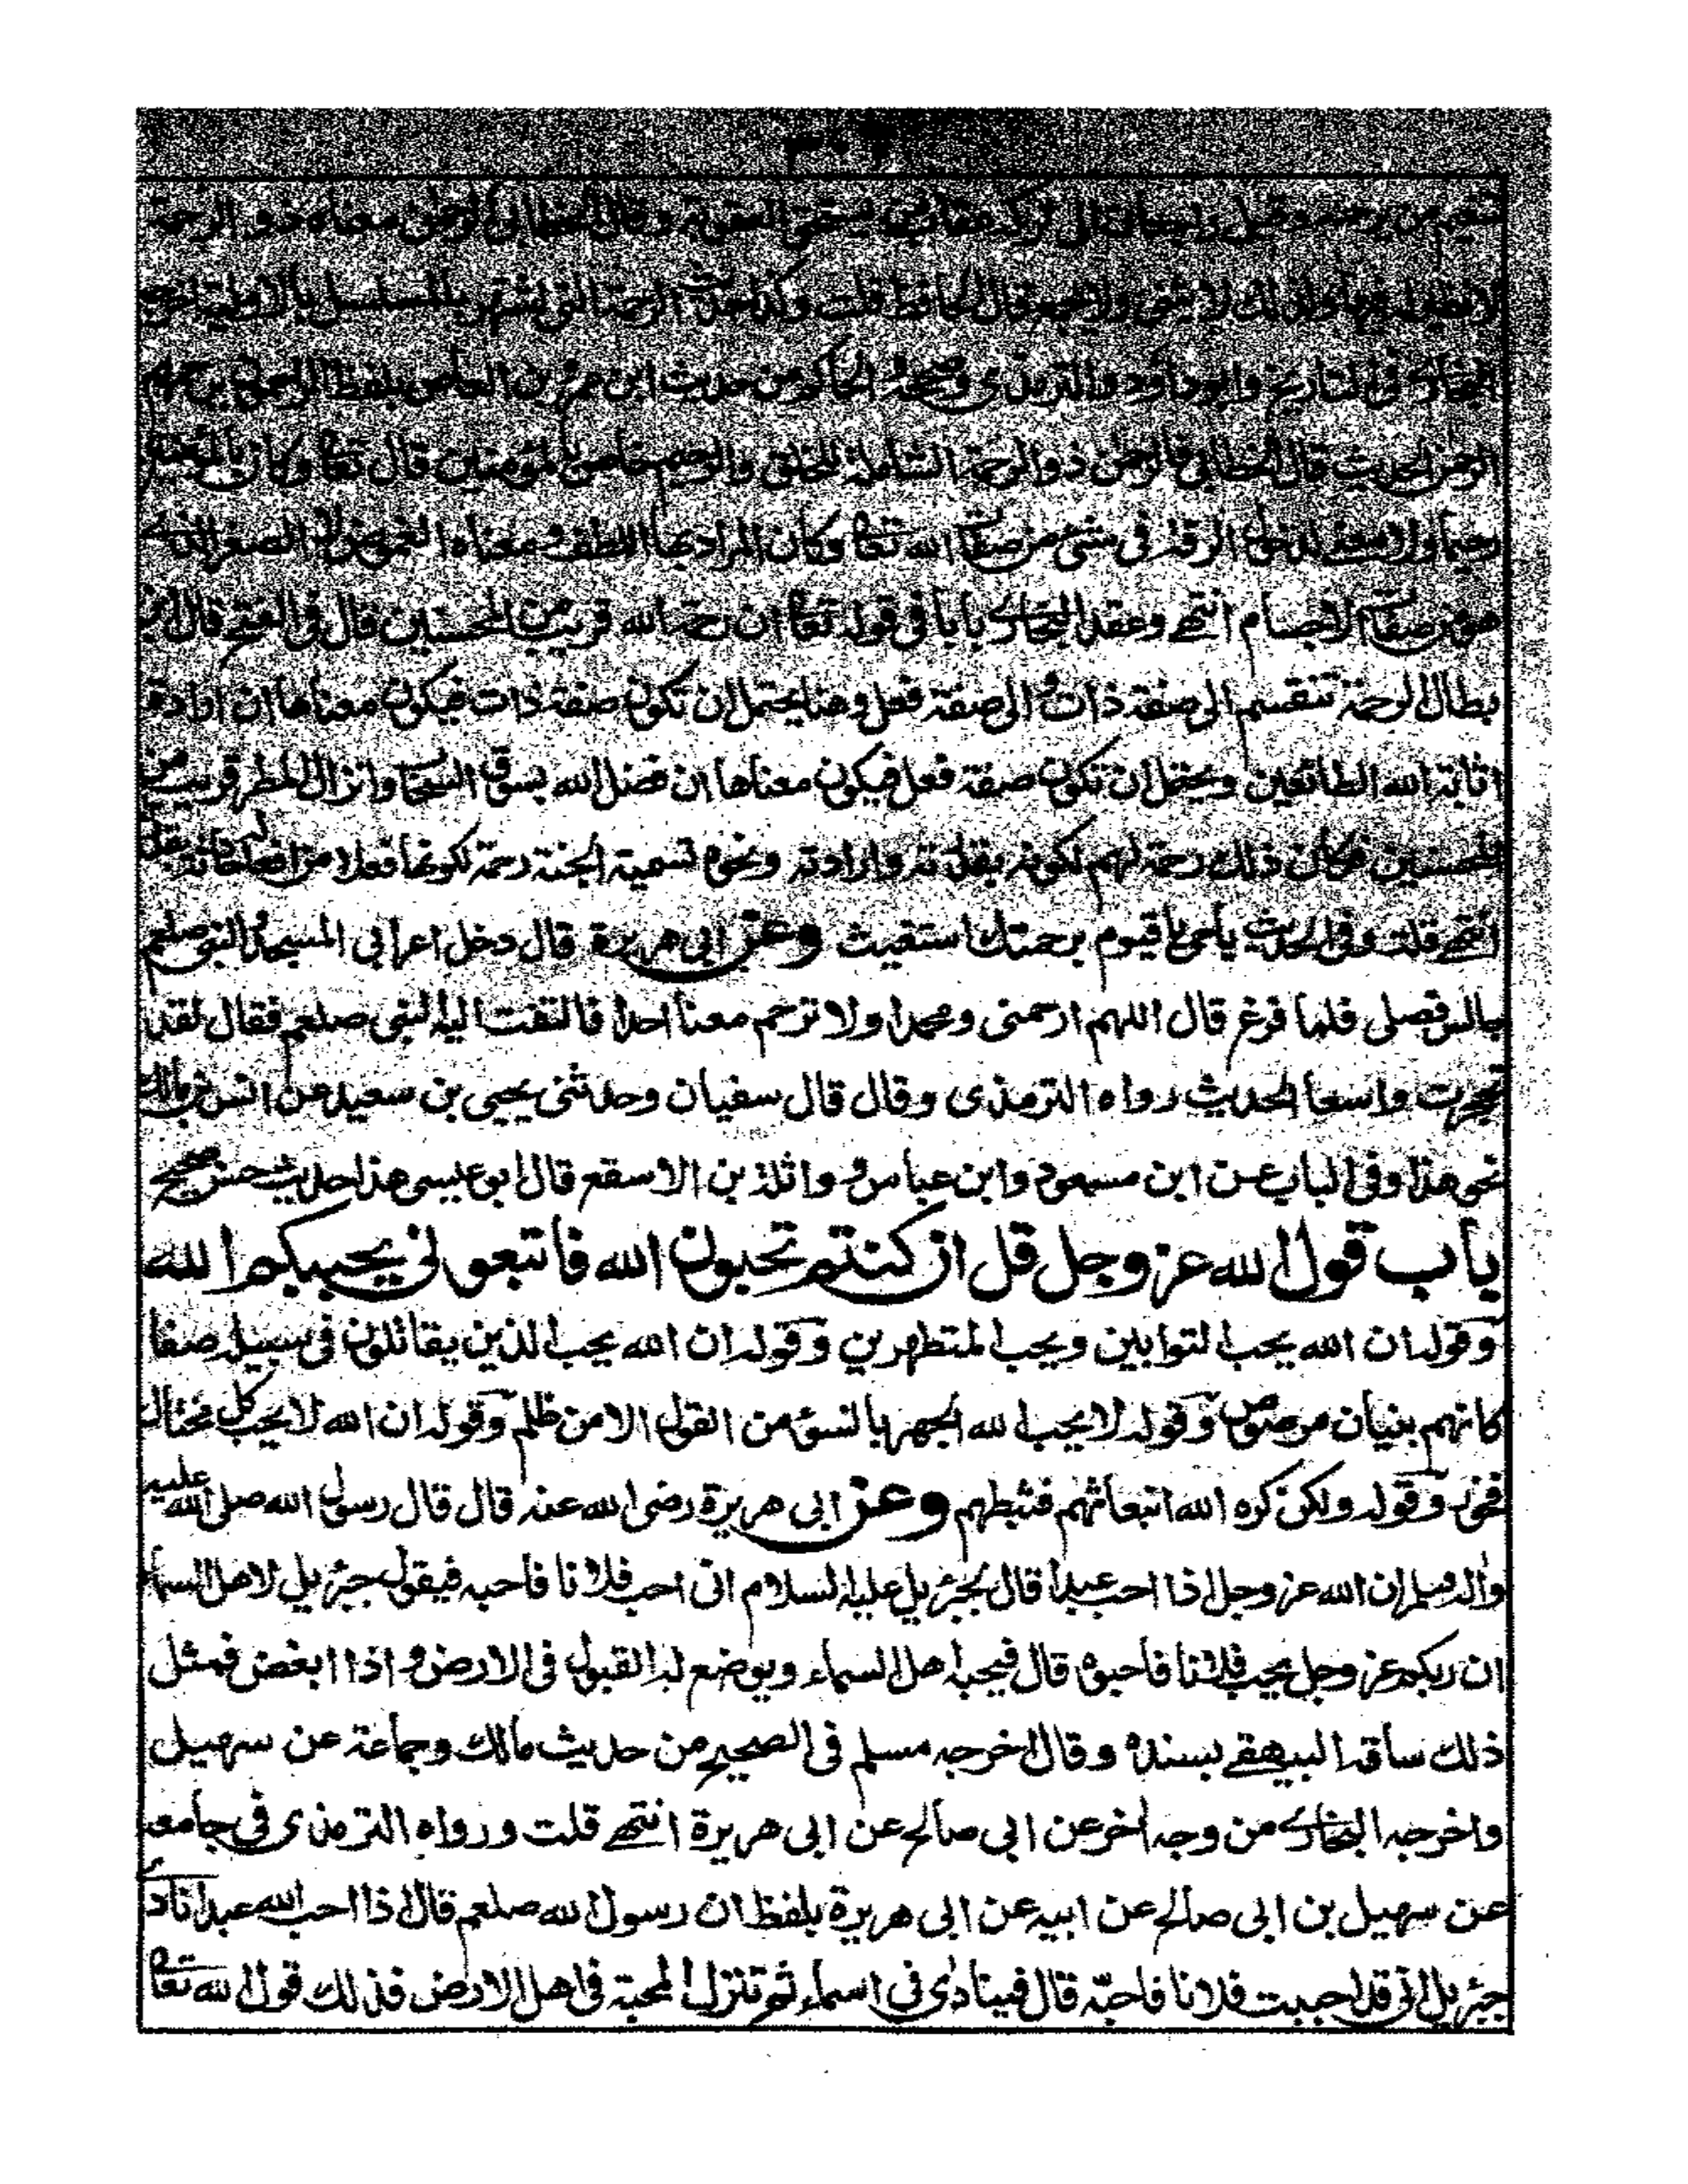 وقال الخطابي الرحمن معناه ذو الرحمة
لا نظير له فيها ولذلك لا يثنى ولا يجمع قال الحافظ قلت وكذا حديث الرحمة التي اشتهر بالمسلسل بالاولية اخرجه
البخاري في التاريخ وابو داود والترمذي وصححه والحاكم من حديث ابن عمرو بن العاص بلفظ الراحمون يرحمهم
الرحمن الحديث قال الخطابي فالرحمن ذو الرحمة الشاملة للخلق والرحيم خاص بالمؤمنين قال تعا وكان بالمؤمنين
رحيما ولا مدخل الرقة في شئ من صفات الله تعا وكان المراد بها اللطف ومعناه الغموض لا الصغر الذي
هو من صفات الاجسام انتهى وعقد البخاري بابا في قوله تعا ان رحمة الله قريب من المحسنين قال في الفتح قال ابن
بطال الرحمة تنقسم الى صفة ذات والى صفة فعل وهنا يحتمل ان تكون صفة ذات فيكون معناها ان ارادة
اثابة الله الطائعين ويحتمل ان تكون صفة فعل فيكون معناها ان فضل الله بسوق السحاب وانزال المطر قريب من
المحسنين فكان ذلك رحمة لهم لكونه بقدرته وارادته ونحوه تسمية الجنة رحمة لكونها فعلا من افعاله حادثة بقدرته
انتهى قلت وفي الحديث يا حي يا قيوم برحمتك استغيث وعن ابي هريرة قال دخل اعرابي المسجد والنبي صلعم
جالس فصلى فلما فرغ قال اللهم ارحمنى ومحمدا ولا ترحم معنا احدا فالتفت اليه النبي صلعم فقال لقد
تحجرت واسعا الحديث رواه الترمذى وقال قال سفيان وحدثنى يحيى بن سعيد عن انس بن مالك
نحو هذا وفي الباب عن ابن مسعود وابن عباس وواثلة بن الاسقع قال ابو عيسى هذا حديث حسن صحيح
باب قول الله عز وجل قل ان كنتم تحبون الله فاتبعونى يحببكم الله
وقوله ان الله يحب التوابين ويحب المتطهرين وقوله ان الله يحب الذين يقاتلون في سبيله صفا
كانهم بنيان مرصوص وقوله لا يحب الله الجهر بالسوء من القول الا من ظلم وقوله ان الله لا يحب كل مختال
فخور وقوله ولكن كره الله انبعاثهم فثبطهم وعن ابى هريرة رضى الله عنه قال قال رسول الله صلى الله عليه
وأله وسلم ان الله عز وجل اذا احب عبدا قال لجبرئيل عليه السلام انى احب فلانا فاحبه فيقول جبرئيل لاهل السماء
ان ربكم عز وجل يحب فلانا فاحبوه قال فيحبه اهل السماء ويوضع له القبول فى الارض واذا ابغض فمثل
ذلك ساقه البيهقى بسنده وقال اخرجه مسلم فى الصحيح من حديث مالك وجماعة عن سهيل
واخرجه البخارى من وجه أخر عن ابى صالح عن ابى هريرة انتهى قلت ورواه الترمذى فى جامعه
عن سهيل بن ابى صالح عن ابيه عن ابى هريرة بلفظ ان رسول الله صلعم قال اذا احب الله عبدا نادى
جبرئيل انى قد احببت فلانا فاحبّه قال فينادى فى اسماء ثم تنزل المحبة فى اهل الارض فذلك قول الله تعا